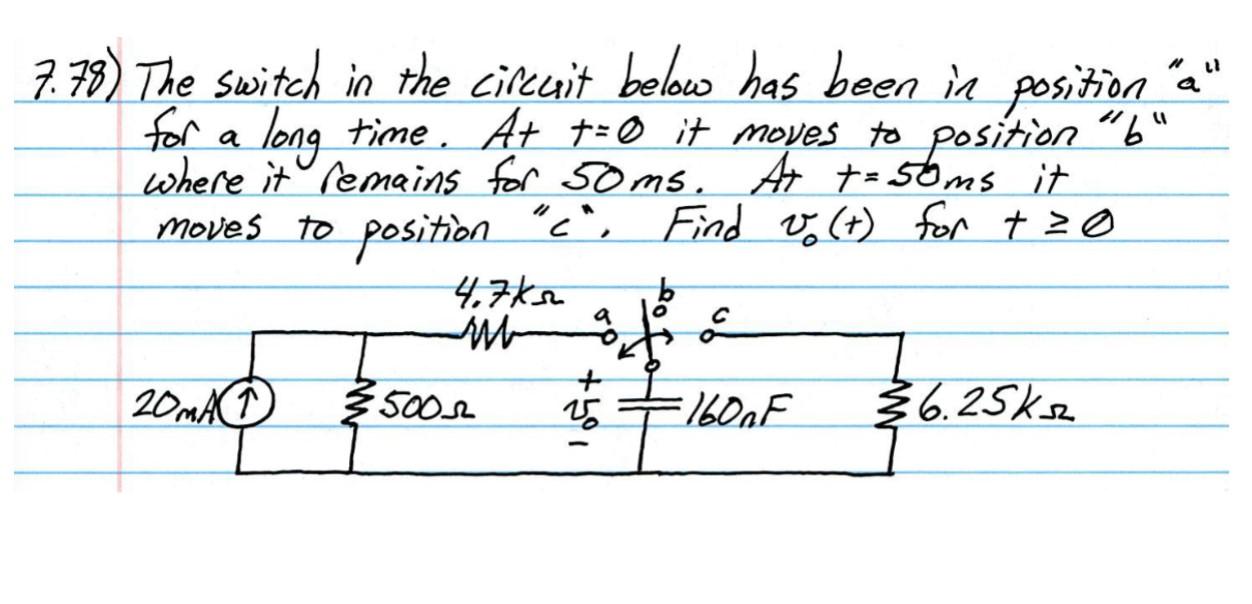 7.78) The switch in the circuit below has been in position "a"
for a long time. At t=0 it moves to position "b"
where it remains for 50ms. At t=50ms it
moves to position "c". Find v₀(t) for t ≥ 0
4.7kΩ
a
b
c
20mA
500Ω
+
v₀
-
160nF
6.25kΩ